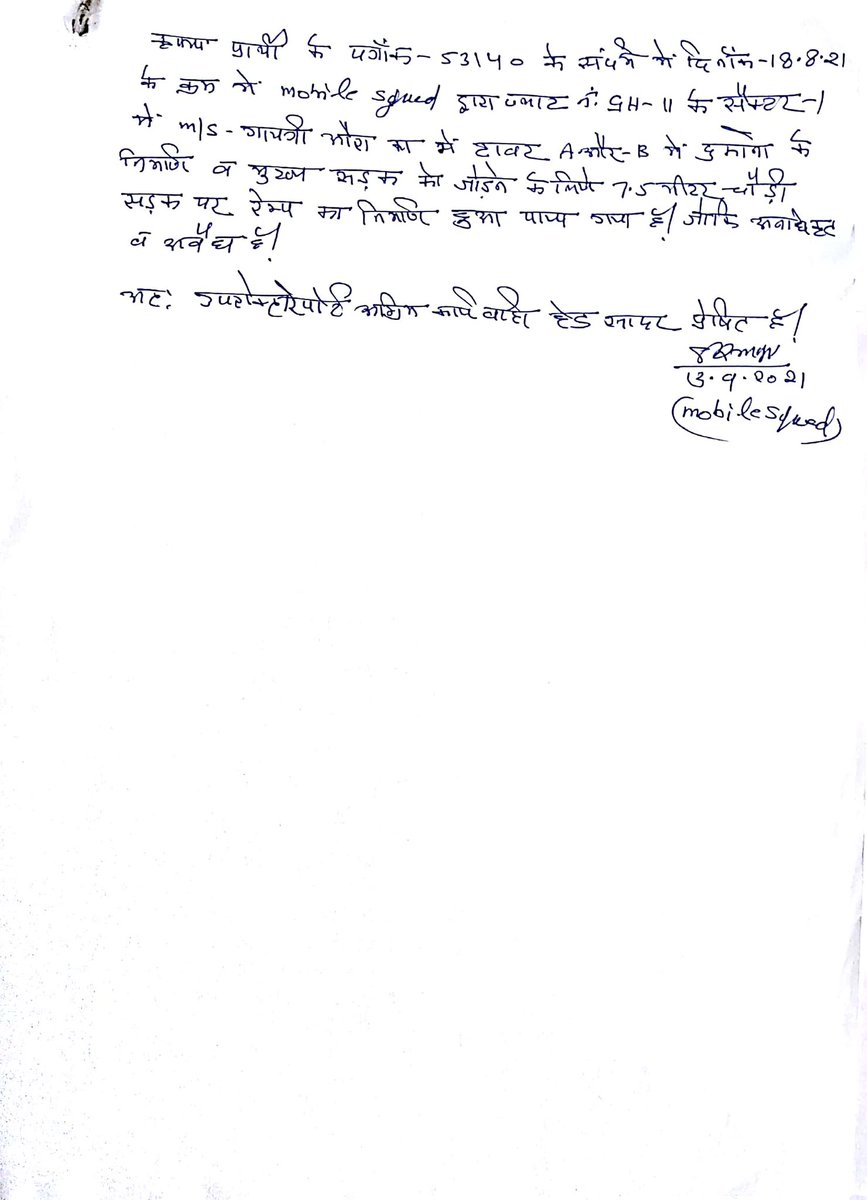 कृपया प्रार्थी के पत्रांक-53140 के संदर्भ में दिनाँक-18.8.21
के क्रम में mobile squed द्वारा प्लाट नं. GH-11 के सैक्टर-1
में m/s-गायत्री औरा का में टावर A और-B में दुकानो के
निर्माण व मुख्य सड़क को जोड़ने के लिये 7.5 मीटर चौड़ी
सड़क पर रेम्प का निर्माण हुआ पाया गया है। जोकि
व अवैध है।
अतः उपरोक्त रिपोर्ट अग्रिम कार्यवाही हेतु सादर प्रेषित है।
13.9.2021
(mobile squed)